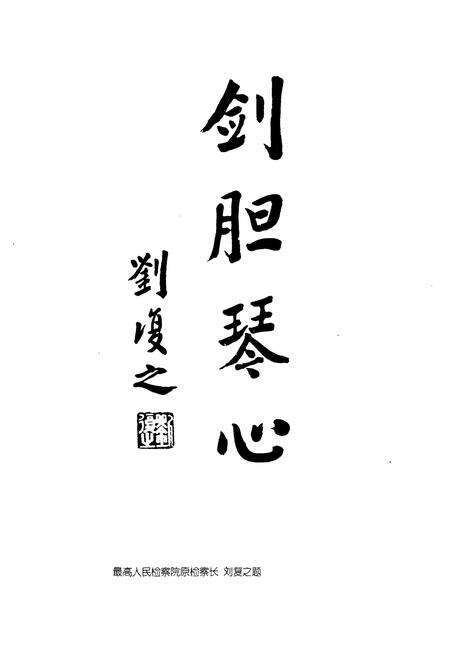 剑胆琴心
劉復之
最高人民检察院原检察长 刘复之题